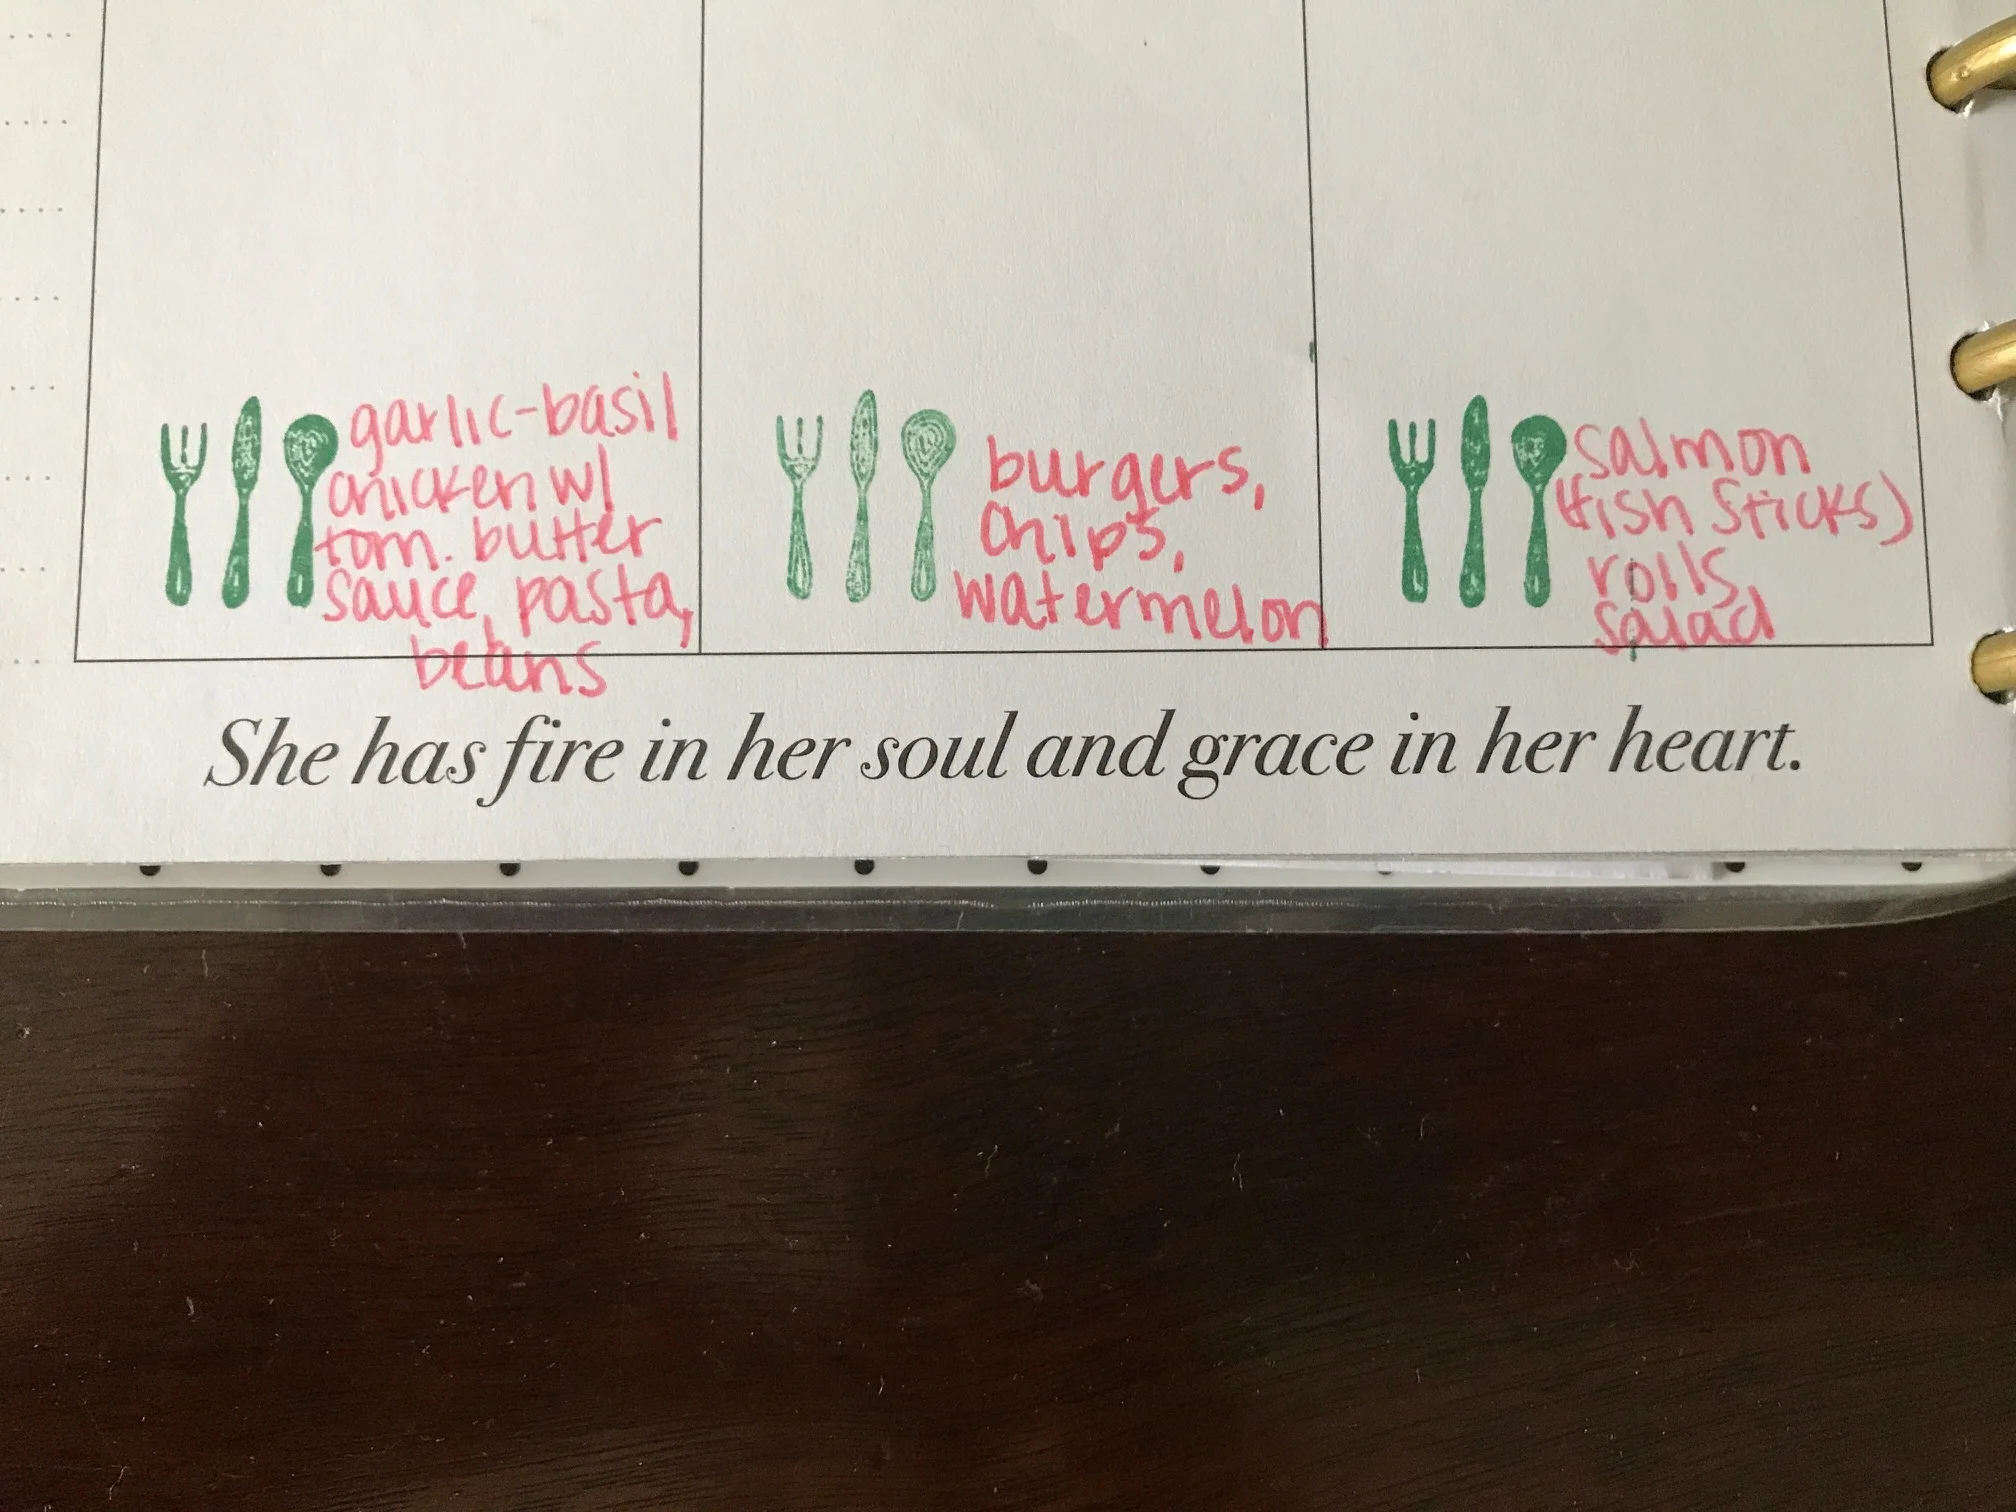 garlic-basil
chicken w/
tom. butter
sauce, pasta,
beans
burgers,
chips,
watermelon
salmon
(fish sticks)
rolls,
salad
She has fire in her soul and grace in her heart.